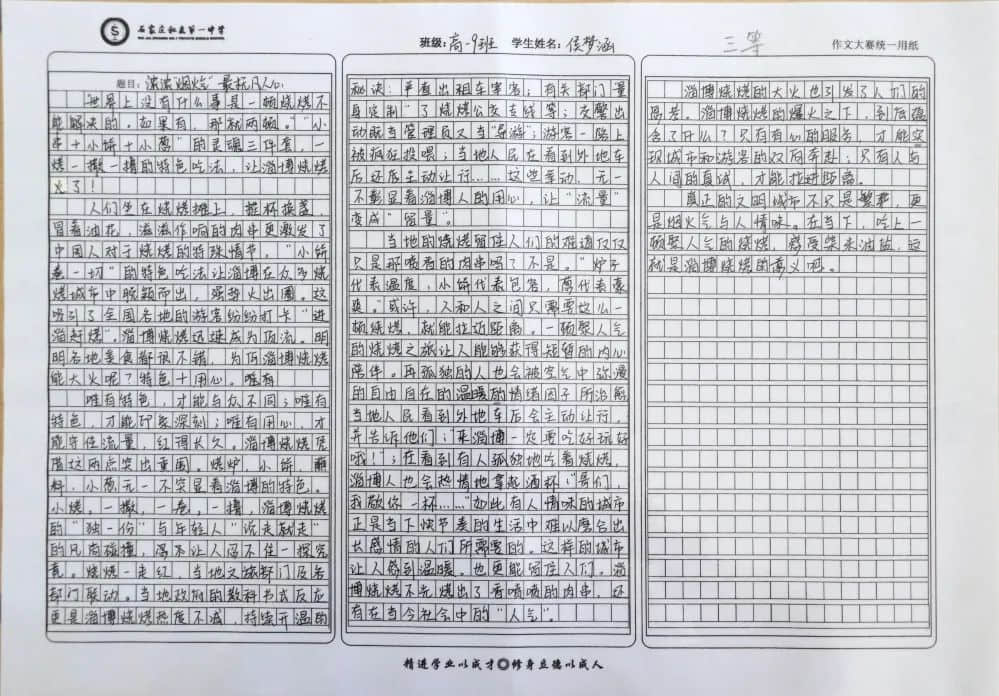 石家庄私立第一中学
班级：高一9班 学生姓名：侯梦涵
三等
作文大赛统一用纸
题目：浓浓"烟火气" 最抚凡人心
世界上没有什么事是一顿烧烤不
能解决的。如果有，那就两顿。""小
串+小饼+小葱"的灵魂三件套，一
烤一撒一撸的特色吃法，让淄博烧烤
火了！
人们坐在烧烤摊上，推杯换盏，
冒着油花，滋滋作响的肉串更激发了
中国人对于烧烤的特殊情节。"小饼
卷一切"的特色吃法让淄博在众多烧
烤城市中脱颖而出，强势火出圈。这
吸引了全国各地的游客纷纷打卡"进
淄赶烤"。淄博烧烤迅速成为顶流。明
明各地美食都很不错，为何淄博烧烤
能大火呢？特色+用心。唯有
唯有特色，才能与众不同；唯有
特色，才能印象深刻；唯有用心，才
能守住流量，红得长久。淄博烧烤凭
借这两点突出重围。烤炉，小饼，蘸
料，小葱无一不突显着淄博的特色。
小烤。一撒，一卷，一撸，淄博烧烤
的"独一份"与年轻人"说走就走"
的风尚碰撞，怎不让人忍不住一探究
竟。烧烤一走红，当地文旅部门及各
部门联动。当地政府的教科书式反应
更是淄博烧烤热度不减，持续升温的
秘诀：声看出租车宰客；有关部门量
身定制"了烧烤公交专线等；交警出
动既当管理员又当"导游"；游客一路上
被疯狂投喂；当地人民在看到外地车
后还后主动让行……这些举动，无一
不彰显着淄博人的用心，让"流量"
变成"留量"。
当地的烧烤留住人们的难道仅仅
只是那喷香的肉串吗？不是。"炉子
代表温度，小饼代表包容，葱代表豪
爽。"或许，人和人之间只需要这么一
顿烧烤，就能拉近距离。一顿聚人气
的烧烤之旅让人能够获得短暂的内心
陪伴。再孤独的人也会被空气中弥漫
的自由自在的温暖的情绪因子所治愈
当地人民看到外地车后会主动让行，
并告诉他们："来淄博一定要吃好玩好
哦！"；在看到有人孤独地吃着烧烤，
淄博人也会热情地拿起酒杯："哥们，
我敬你一杯……"如此有人情味的城市
正是当下快节奏的生活中难以磨合出
长感情的人们所需要的。这样的城市
让人感到温暖。也更能留住人们。淄
博烧烤不光烤出了香喷喷的肉串，还
有在当今社会中的"人气"。
淄博烧烤的大火也引发了人们的
思考。淄博烧烤的爆火之下，到底蕴
含了什么？只有有心的服务，才能实
现城市和游客的双向奔赴；只有人与
人间的真诚，才能拉进距离。
真正的文明城市不只是繁华，更
是烟火气与人情味。在当下，吃上一
顿聚人气的烧烤，感受柴米油盐，这
就是淄博烧烤的意义吧。
精进学业以成才 修身立德以成人